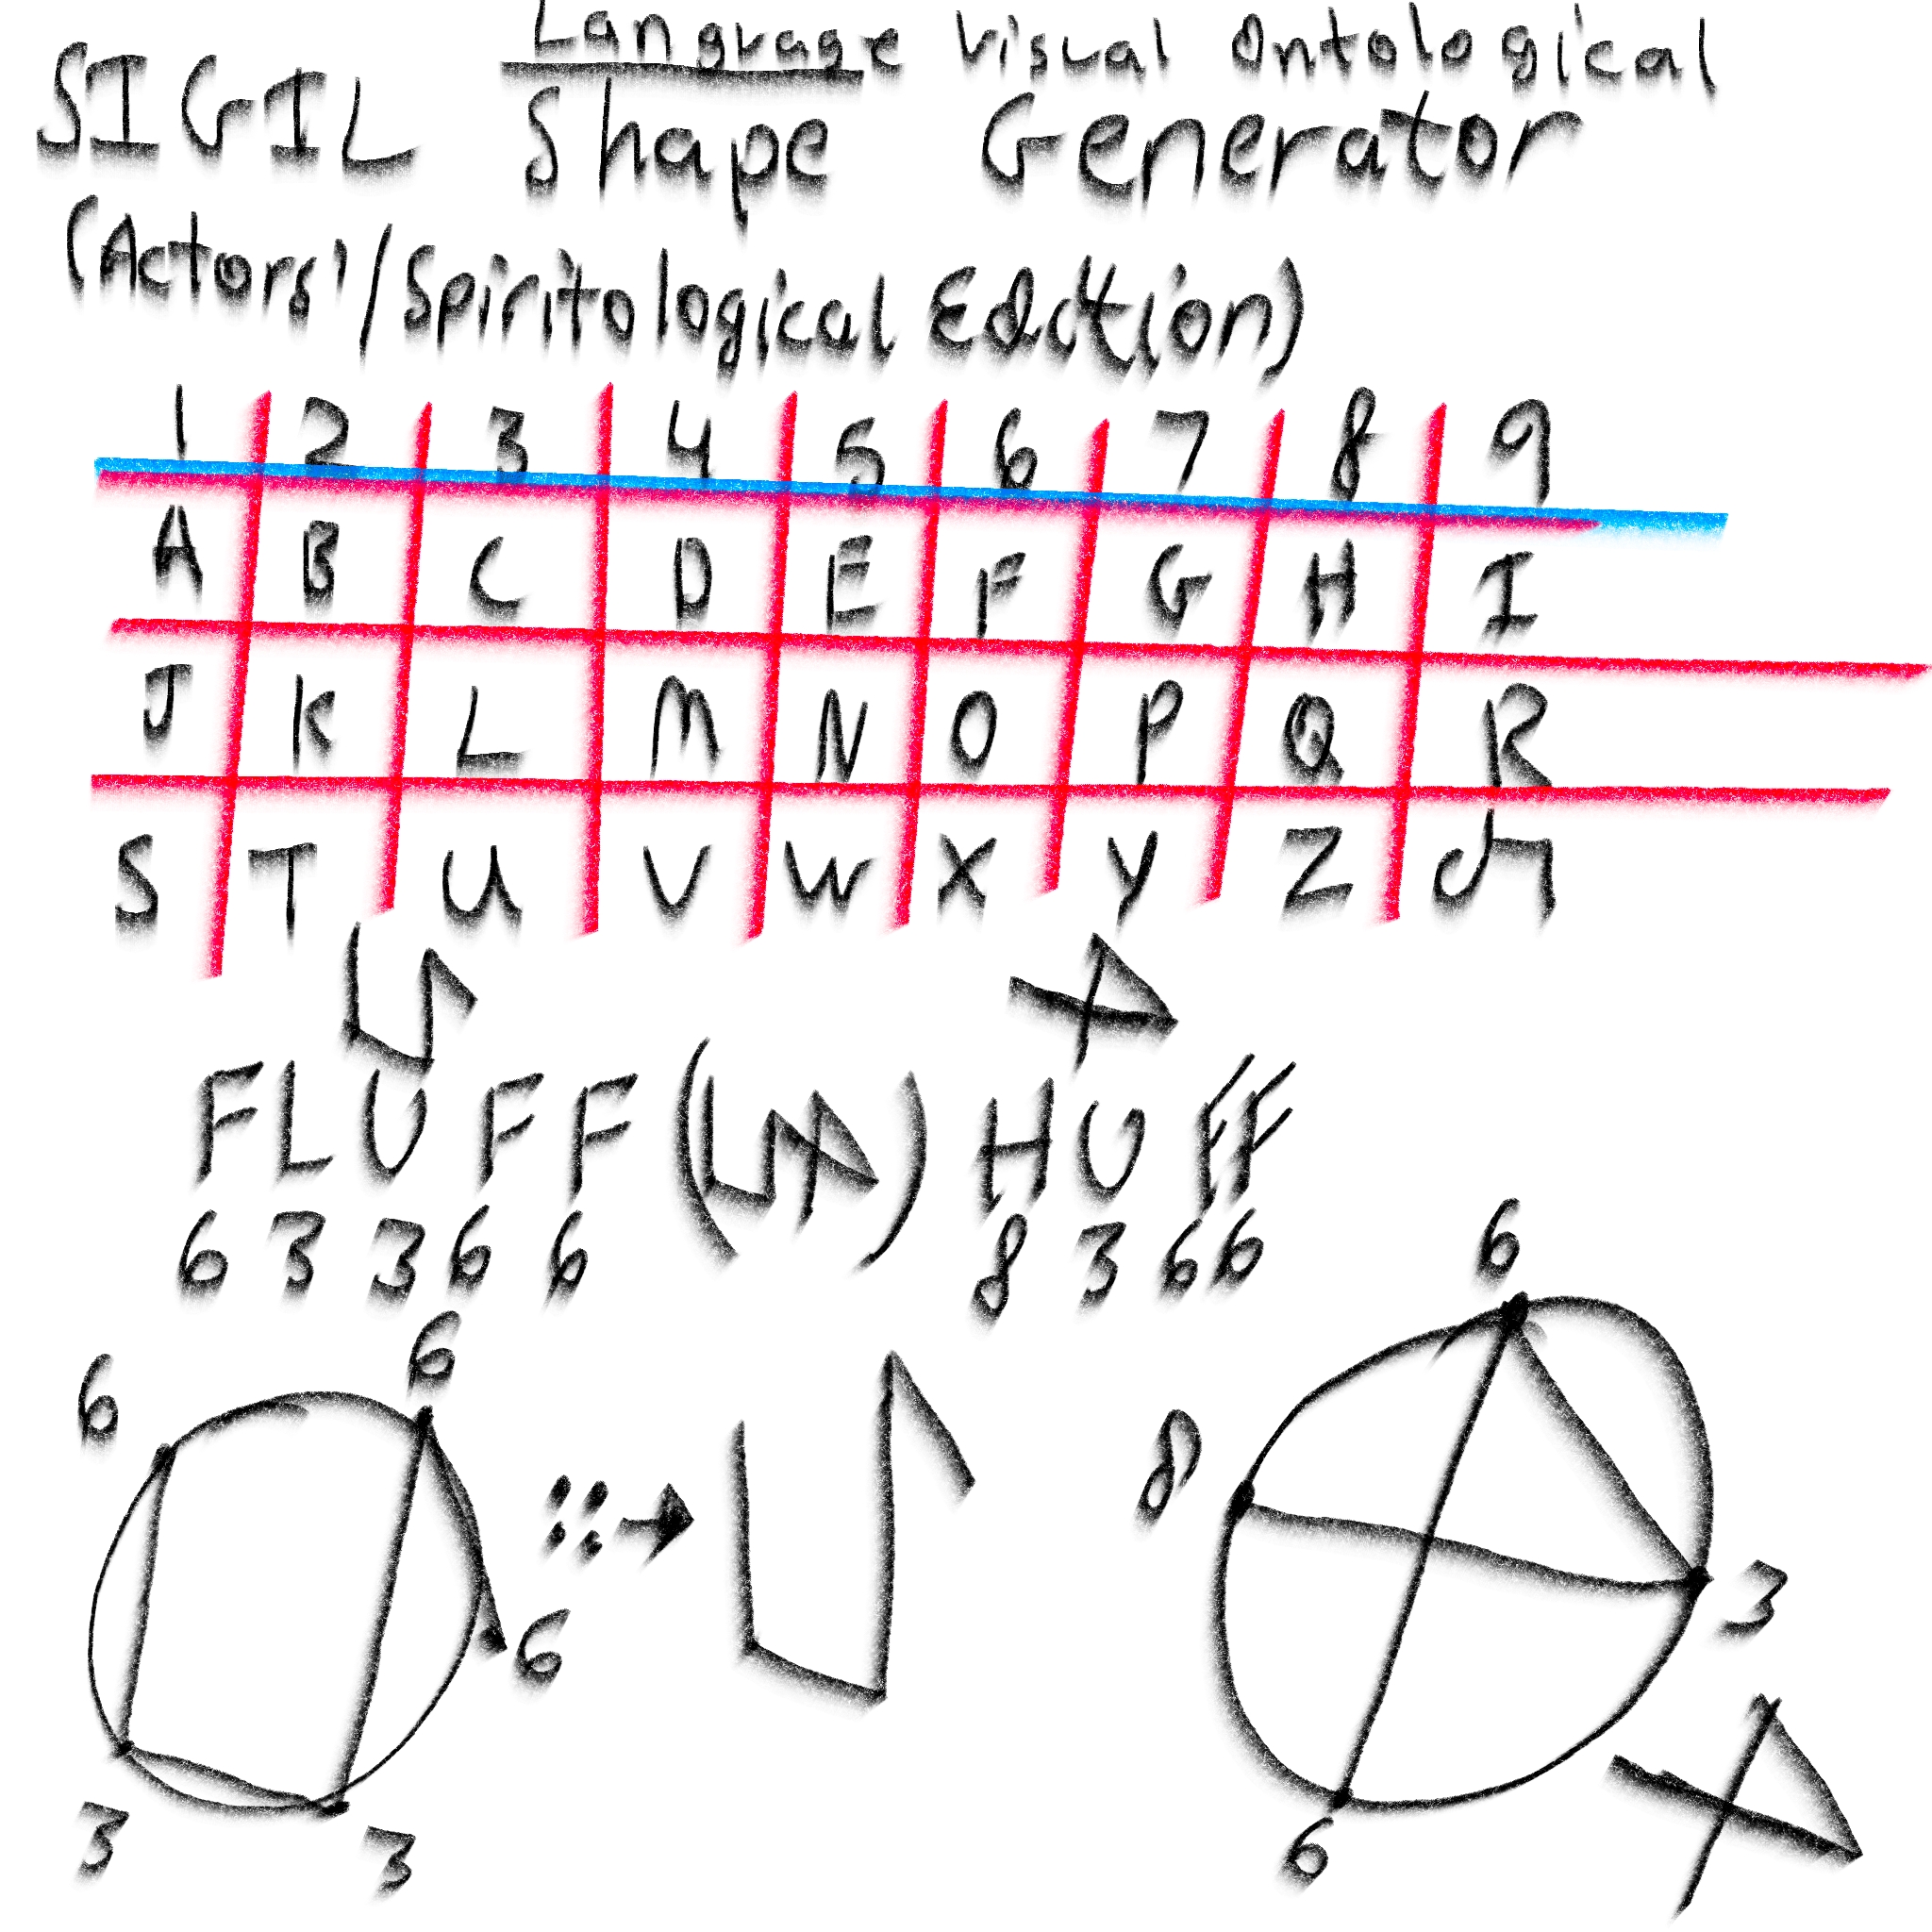 Language Visual Ontological
SIGIL Shape Generator
(Actors'/Spiritological Edition)
1 2 3 4 5 6 7 8 9
A B C D E F G H I
J K L M N O P Q R
S T U V W X Y Z
FLUFF ( ) HUFF
6 3 3 6 6 8 3 6 6
6
6 6
8
3
6
3 3
6